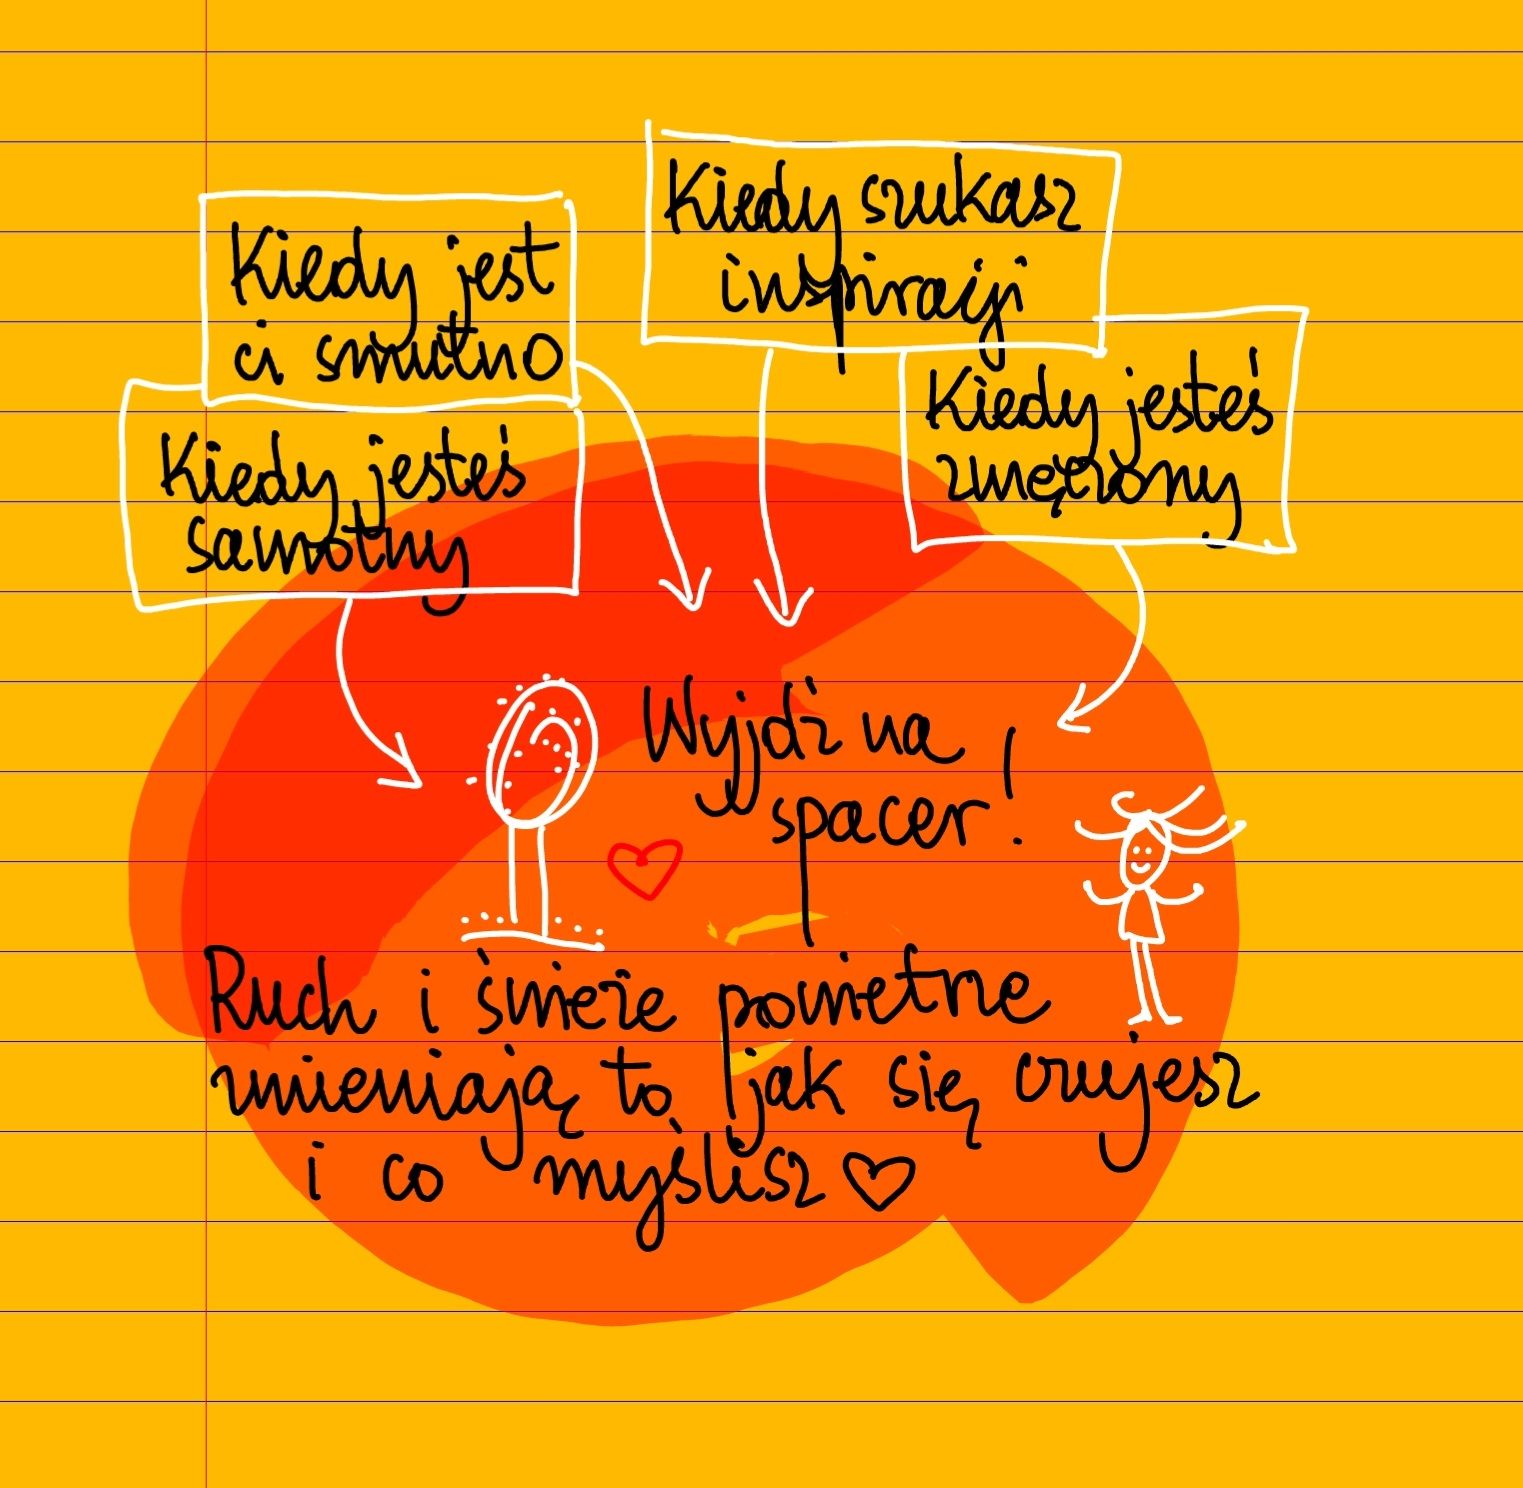 Kiedy jest
ci smutno
Kiedy szukasz
inspiracji
Kiedy jesteś
samotny
Kiedy jesteś
zmęczony
Wyjdź na
spacer!
Ruch i świeże powietrze
zmieniają to, jak się czujesz
i co myślisz